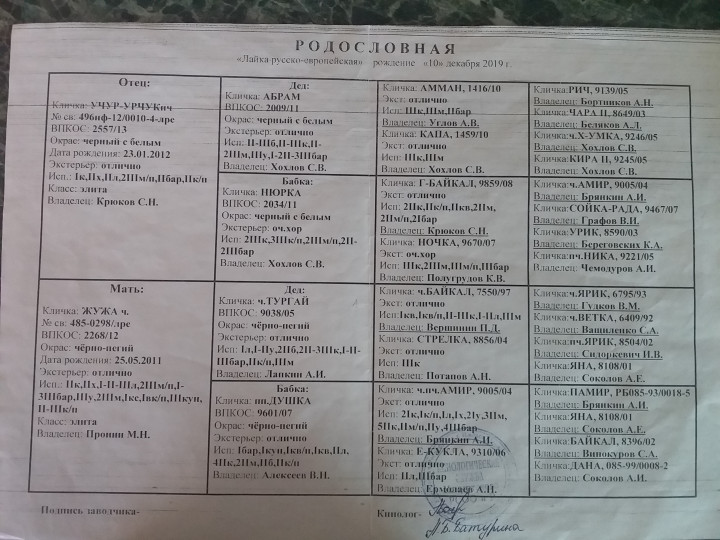 РОДОСЛОВНАЯ
«Лайка русско-европейская» рождение «10» декабря 2019 г.
Отец:
Кличка: УЧУР-УРЧУКич
№ св: 496нф-12/0010-4-лре
ВПКОС: 2557/13
Окрас: черный с белым
Дата рождения: 23.01.2012
Экстерьер: отлично
Исп.: Iк,IIх,IIл,2IIIм/п,IIбар,IIк/п
Класс: элита
Владелец: Крюков С.Н.
Мать:
Кличка: ЖУЖА ч.
№ св: 485-0298/лре
ВПКОС: 2268/12
Окрас: чёрно-пегий
Дата рождения: 25.05.2011
Экстерьер: отлично
Исп.: IIк,IIх,I-II-IIIл,2IIIм/п,I-
3IIIбар,IIIу,2IIIм,Iкс,Iвк/п,IIIкуп,
II-IIIк/п
Класс: элита
Владелец: Пронин М.Н.
Дед:
Кличка: АБРАМ
ВПКОС: 2009/11
Окрас: черный с белым
Экстерьер: отлично
Исп: II-IIIб,II-IIIк,II-
2IIIм,IIIу,I-2II-3IIIбар
Владелец: Хохлов С.В.
Бабка:
Кличка: НЮРКА
ВПКОС: 2034/11
Окрас: черный с белым
Экстерьер: оч.хор
Исп: 2IIIк,3IIIк/п,2IIIм/п,2II-
2IIIбар
Владелец: Хохлов С.В.
Дед:
Кличка: ч.ТУРГАЙ
ВПКОС: 9038/05
Окрас: чёрно-пегий
Экстерьер: отлично
Исп: Iл,I-IIу,2IIб,2II-3IIIк,I-II-
IIIбар,IIк/п,IIIм
Владелец: Лапкин А.И.
Бабка:
Кличка: пп.ДУШКА
ВПКОС: 9601/07
Окрас: чёрно-пегий
Экстерьер: отлично
Исп: Iбар,Iкуп,Iкв/п,Iкв,IIл,
4IIк,2IIм,IIб,IIк/п
Владелец: Алексеев В.Н.
Кличка: АММАН, 1416/10
Экст: отлично
Исп: IIIк,IIIм,IIбар
Владелец: Углов А.В.
Кличка: КАПА, 1459/10
Экст: отлично
Исп: IIIк,IIIм
Владелец: Хохлов С.В.
Кличка: Г-БАЙКАЛ, 9859/08
Экст: отлично
Исп: 2IIк,IIк/п,IIкв,2IIм,
2IIм/п,2Iбар
Владелец: Крюков С.Н.
Кличка: НОЧКА, 9670/07
Экст: оч.хор
Исп: IIIк,2IIIм,IIIм/п,IIIбар
Владелец: Полугрудов К.В.
Кличка: ч.БАЙКАЛ, 7550/97
Экст: отлично
Исп:Iкв,Iкв/п,II-IIIк,I-IIл,IIIм
Владелец: Вершинин П.Д.
Кличка: СТРЕЛКА, 8856/04
Экст: отлично
Исп: IIIк
Владелец: Потапов А.Н.
Кличка: ч.пч.АМИР, 9005/04
Экст: отлично
Исп: 2Iк,Iк/п,Iл,Iх,2Iу,3IIм,
5IIк,IIм/п,IIу,4IIIбар
Владелец: Брянкин А.И.
Кличка: Е-КУКЛА, 9310/06
Экст: отлично
Исп: IIл,IIIбар
Владелец: Ермолаев А.П.
Кличка:РИЧ, 9139/05
Владелец: Бортников А.Н.
Кличка:ЧАРА II, 8649/03
Владелец: Беляков А.Л.
Кличка:ч.Х-УМКА, 9246/05
Владелец: Хохлов С.В.
Кличка: КИРА II, 9245/05
Владелец: Хохлов С.В.
Кличка:ч.АМИР, 9005/04
Владелец: Брянкин А.И.
Кличка:СОЙКА-РАДА, 9467/07
Владелец: Графов В.И.
Кличка:УРИК, 8590/03
Владелец: Береговских К.А.
Кличка:пч.НИКА, 9221/05
Владелец: Чемодуров А.И.
Кличка:ч.ЯРИК, 6795/93
Владелец: Гудков В.М.
Кличка:ч.ВЕТКА, 6409/92
Владелец: Ващиленко С.А.
Кличка:пч.ЯРИК, 8504/02
Владелец: Сидоркевич И.В.
Кличка:ЯНА, 8108/01
Владелец: Соколов А.Е.
Кличка:ПАМИР, РБ085-93/0018-5
Владелец: Брянкин А.И.
Кличка:ЯНА, 8108/01
Владелец: Соколов А.Е.
Кличка:БАЙКАЛ, 8396/02
Владелец: Винокуров С.А.
Кличка:ДАНА, 085-99/0008-2
Владелец: Соколов А.И.
Подпись заводчика-
Кинолог-
Л.Б.Батурина